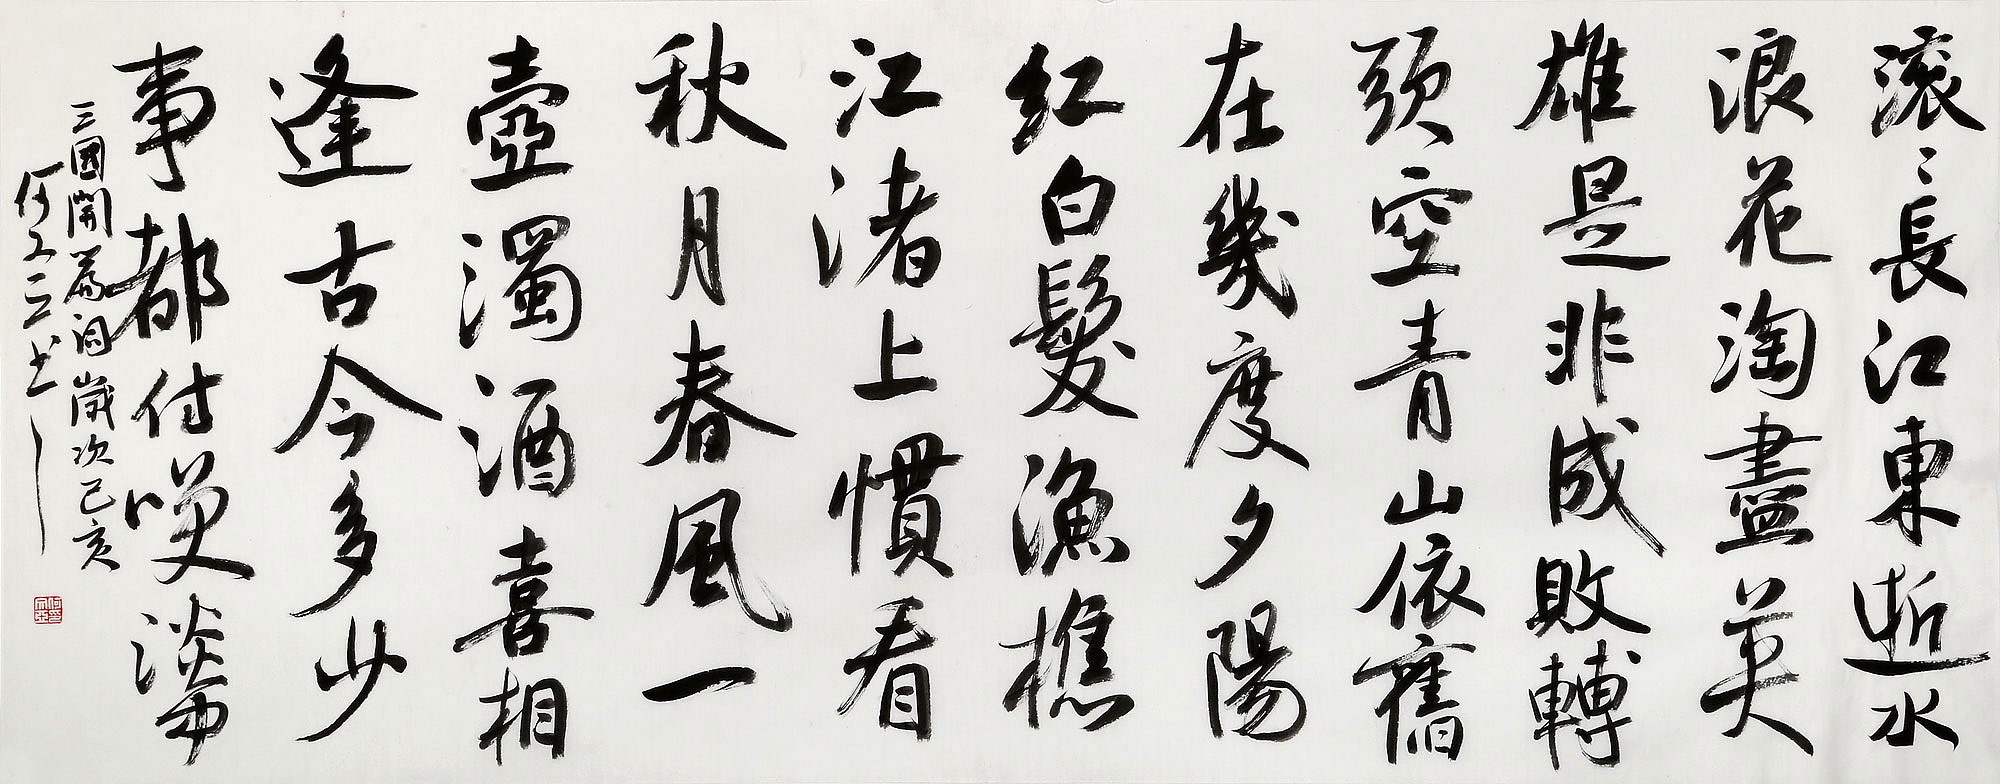 滚〻長江東逝水
浪花淘盡英
雄是非成敗轉
頭空青山依舊
在幾度夕陽
紅白髮漁樵
江渚上慣看
秋月春風一
壺濁酒喜相
逢古今多少
事都付咲談中
三國開篇詞歲次己亥
何书